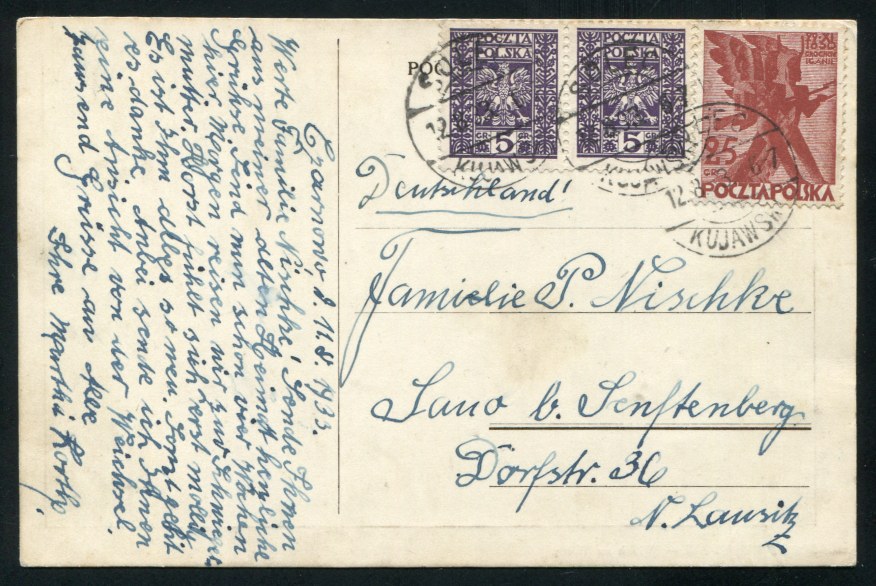 Czarnowo d. 11.8.1933.
Werte Familie Nischke! Sende Ihnen
aus meiner alten Heimat herzliche
Grüsse. Sind nun schon vier Wochen
hier. Morgen reisen wir zur Schwieger
mutter. Horst fühlt sich erst mollig
Es ist Ihm alles so neu. Sonst geht
es danke. Anbei sende ich Ihnen
eine Ansicht von der Weichsel.
Tausend Grüsse an Alle
Ihre Martha Korth
POCZTA
POLSKA
5 GR 5
POCZTA
POLSKA
5 GR 5
1830
25
GR
POCZTA POLSKA
KUJAWSK
12.8.33
KUJAWSK
Deutschland!
Familie P. Nischke
Sauo b. Senftenberg
Dorfstr. 36
N. Lausitz